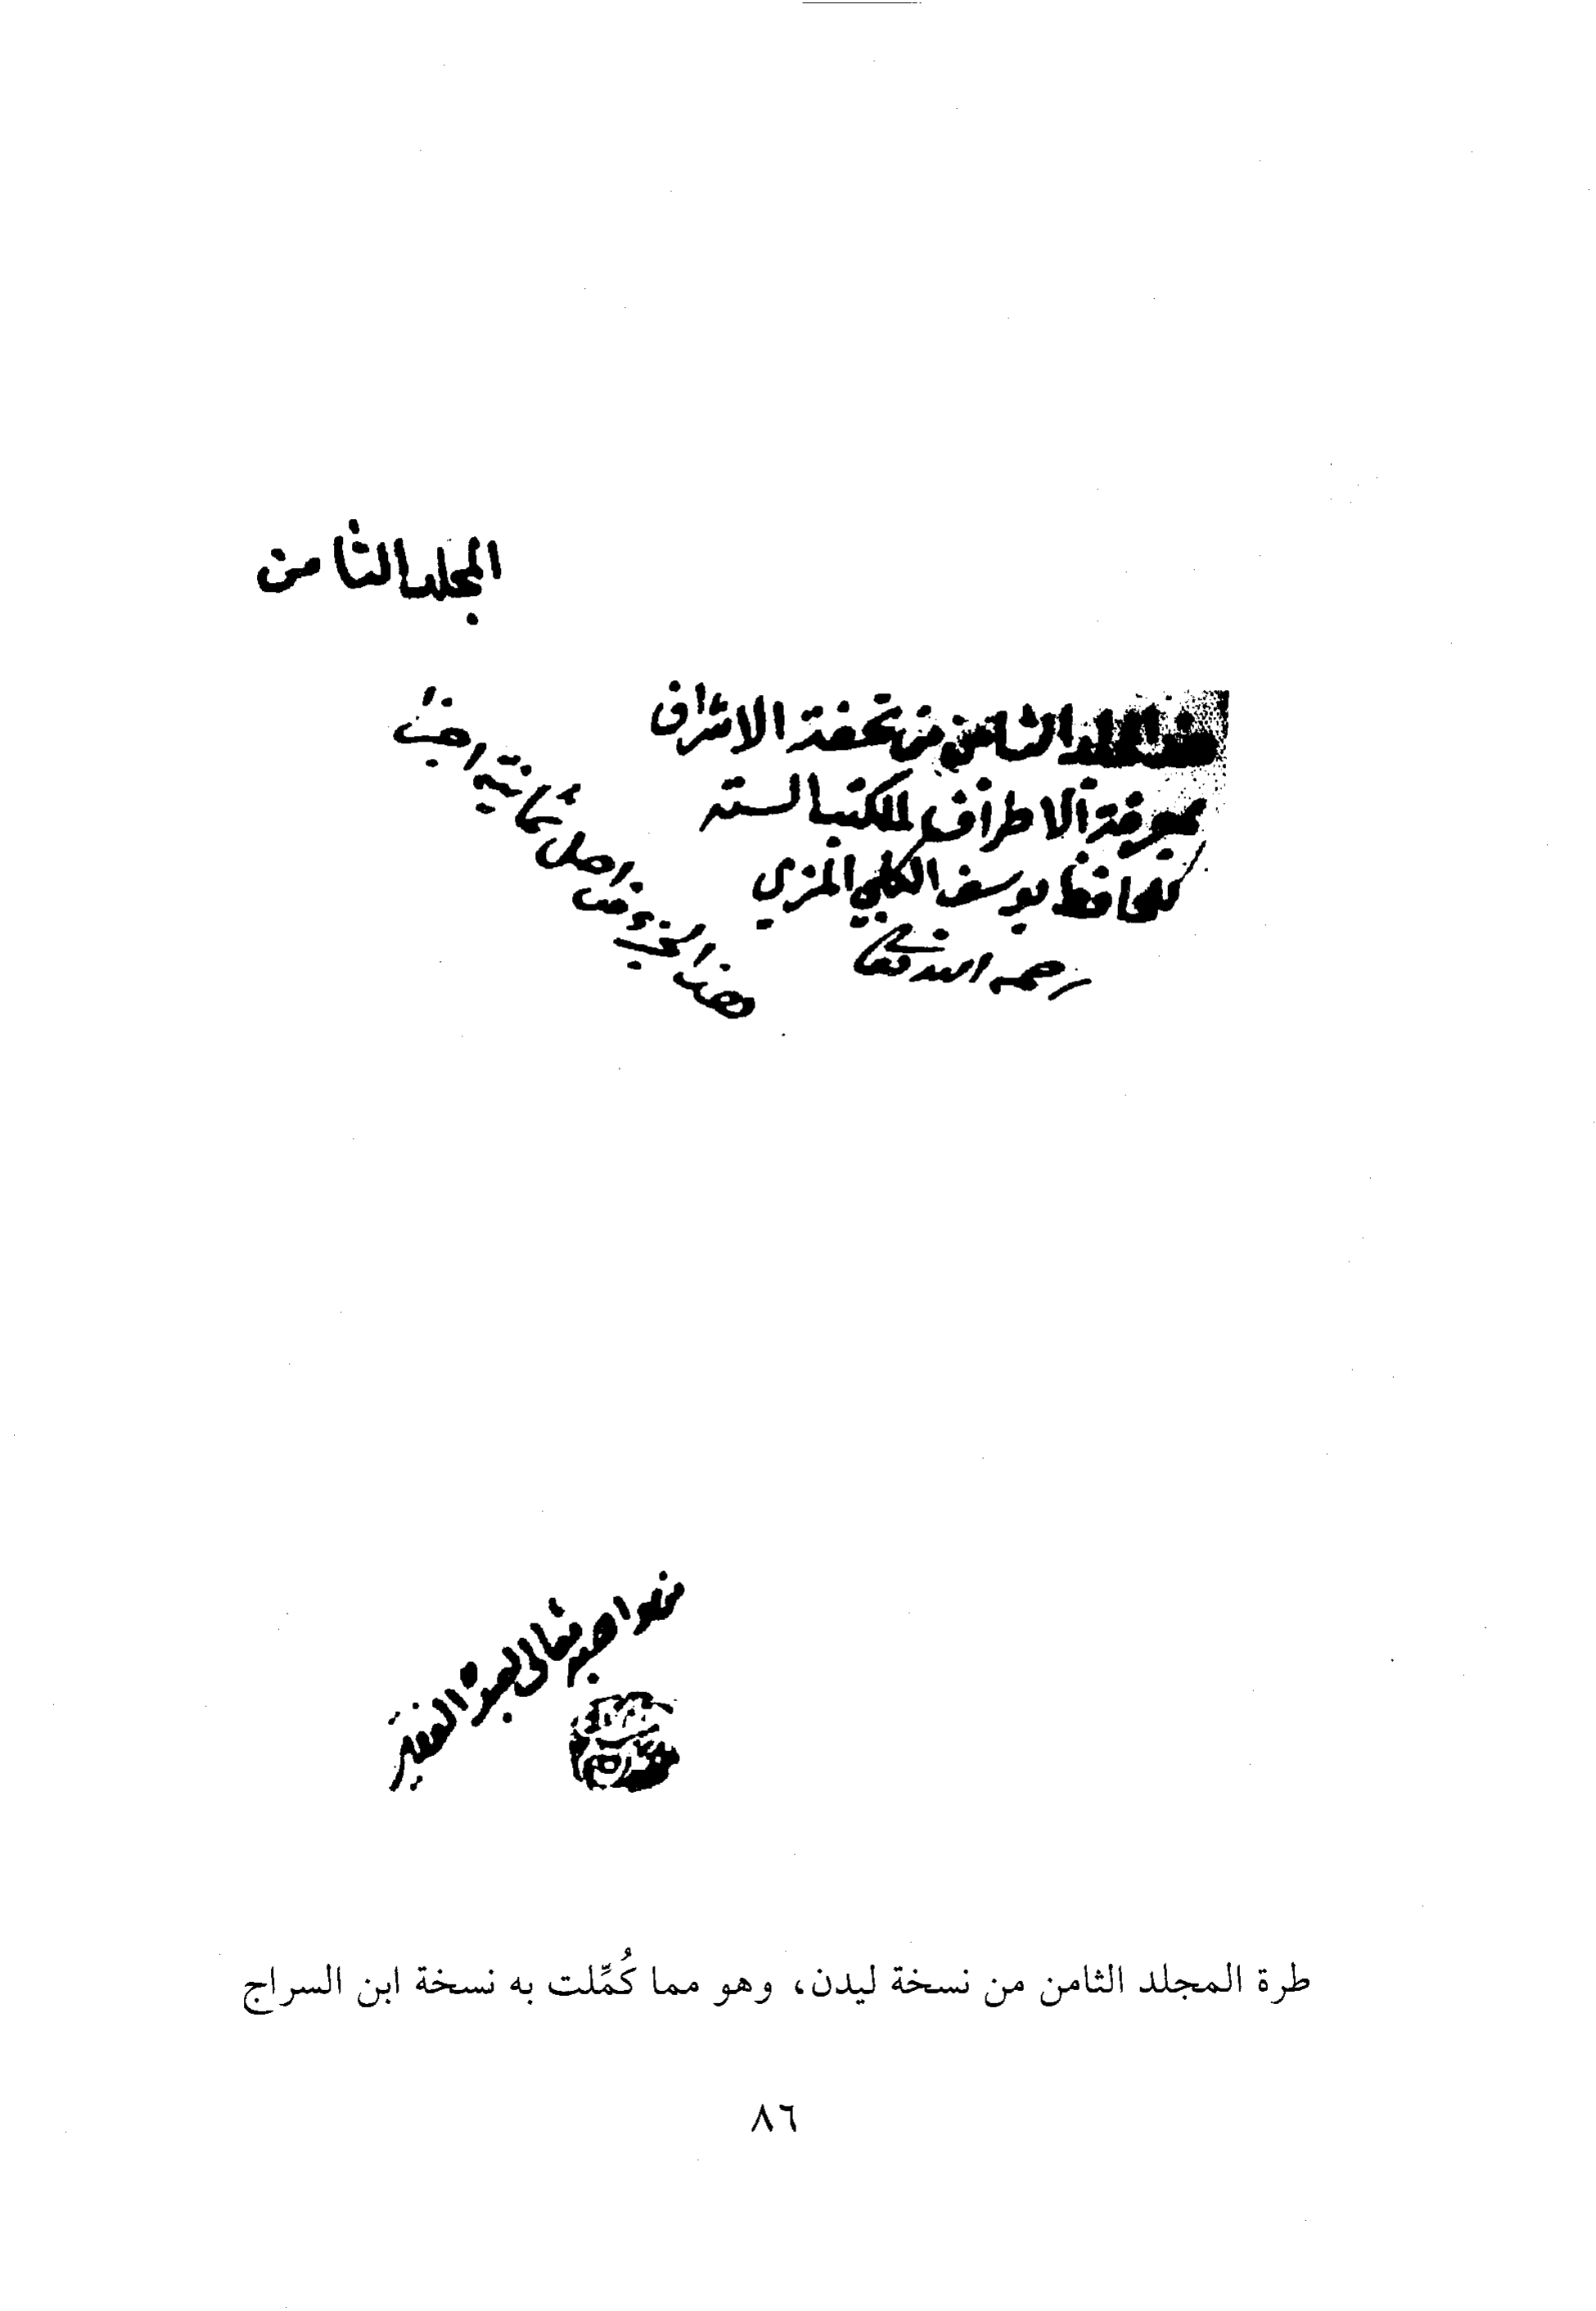 المجلد الثامن
هذا المجلد الثامن من تحفة الاشراف
بمعرفة الاطراف للكتب الستة
للحافظ يوسف الكلبي المزي
رحمه الله تعالى
هذا الجزء من اصل ثمانية اجزا
من مواهبه تعالى لعبده الفقير
طرة المجلد الثامن من نسخة ليدن، وهو مما كُمِّلت به نسخة ابن السراج
٨٦